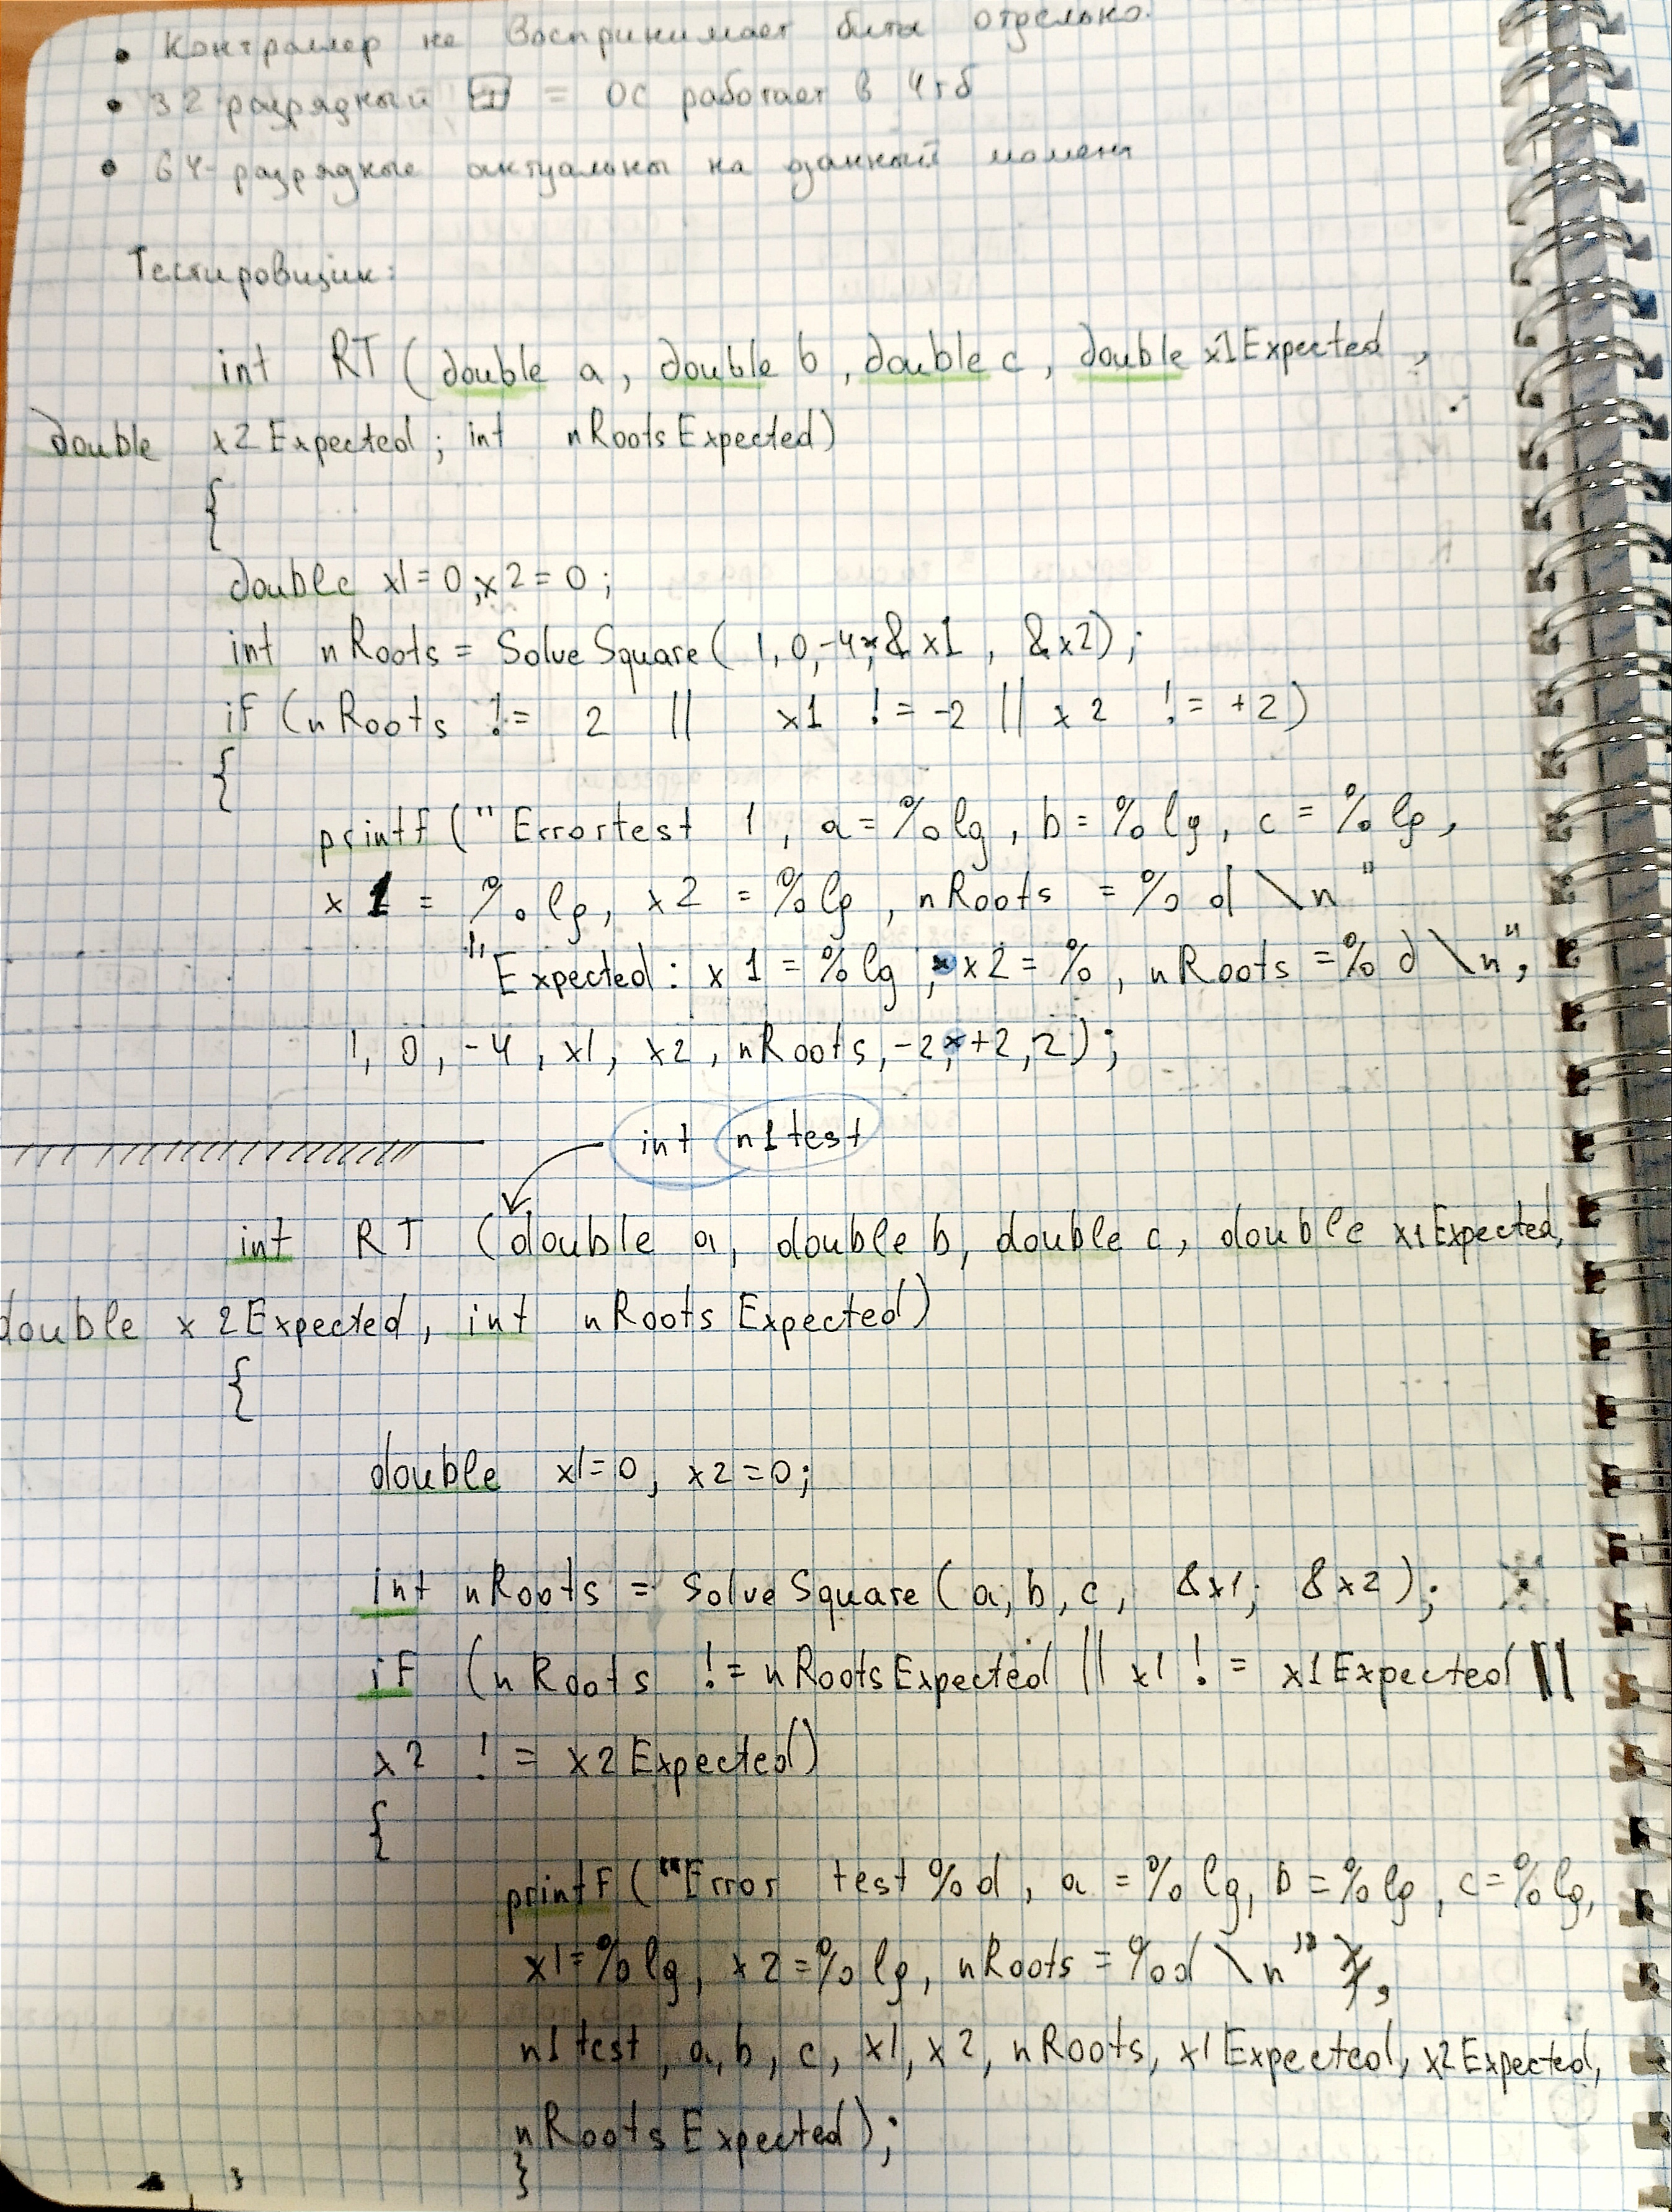 • Контроллер не воспринимает биты отдельно.
• 32 разрядный = ОС работает в 4гб
• 64-разрядные актуальны на данный момент
Тестировщик:
int RT (double a, double b, double c, double x1Expected,
double x2Expected; int nRootsExpected)
{
double x1=0, x2=0;
int nRoots = SolveSquare( 1, 0, -4, &x1, &x2);
if (nRoots != 2 || x1 != -2 || x2 != +2)
{
printf ("Errortest 1, a=%lg, b=%lg, c=%lg,
x1 = %lg, x2 = %lg, nRoots = %d \n"
"Expected: x1 = %lg, x2 = %, nRoots = %d \n",
1, 0, -4, x1, x2, nRoots, -2, +2, 2);
int n1test
int RT (double a, double b, double c, double x1Expected,
double x2Expected, int nRootsExpected)
{
double x1=0, x2=0;
int nRoots = SolveSquare(a, b, c, &x1; &x2);
if (nRoots != nRootsExpected || x1 != x1Expected ||
x2 != x2Expected)
{
printf ("Error test %d, a=%lg, b=%lg, c=%lg,
x1=%lg, x2=%lg, nRoots=%d \n",
n1test, a, b, c, x1, x2, nRoots, x1Expected, x2Expected,
nRootsExpected);
}